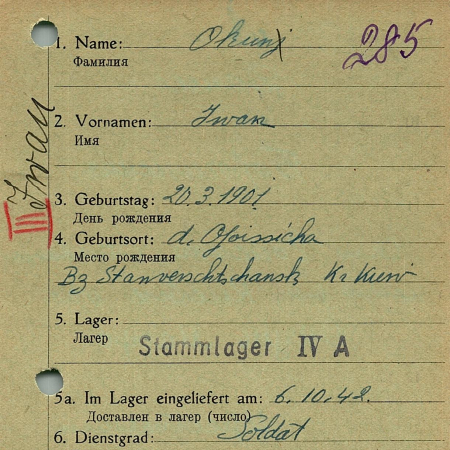 1. Name: Okunj 285
Фамилия
2. Vornamen: Iwan
Имя
Iwan
III
3. Geburtstag: 20.3.1901
День рождения
4. Geburtsort: d.
Место рождения
Bz Kr Kiew
5. Lager:
Лагерь
Stammlager IV A
5a. Im Lager eingeliefert am: 6.10.42.
Доставлен в лагерь (число)
6. Dienstgrad: Soldat